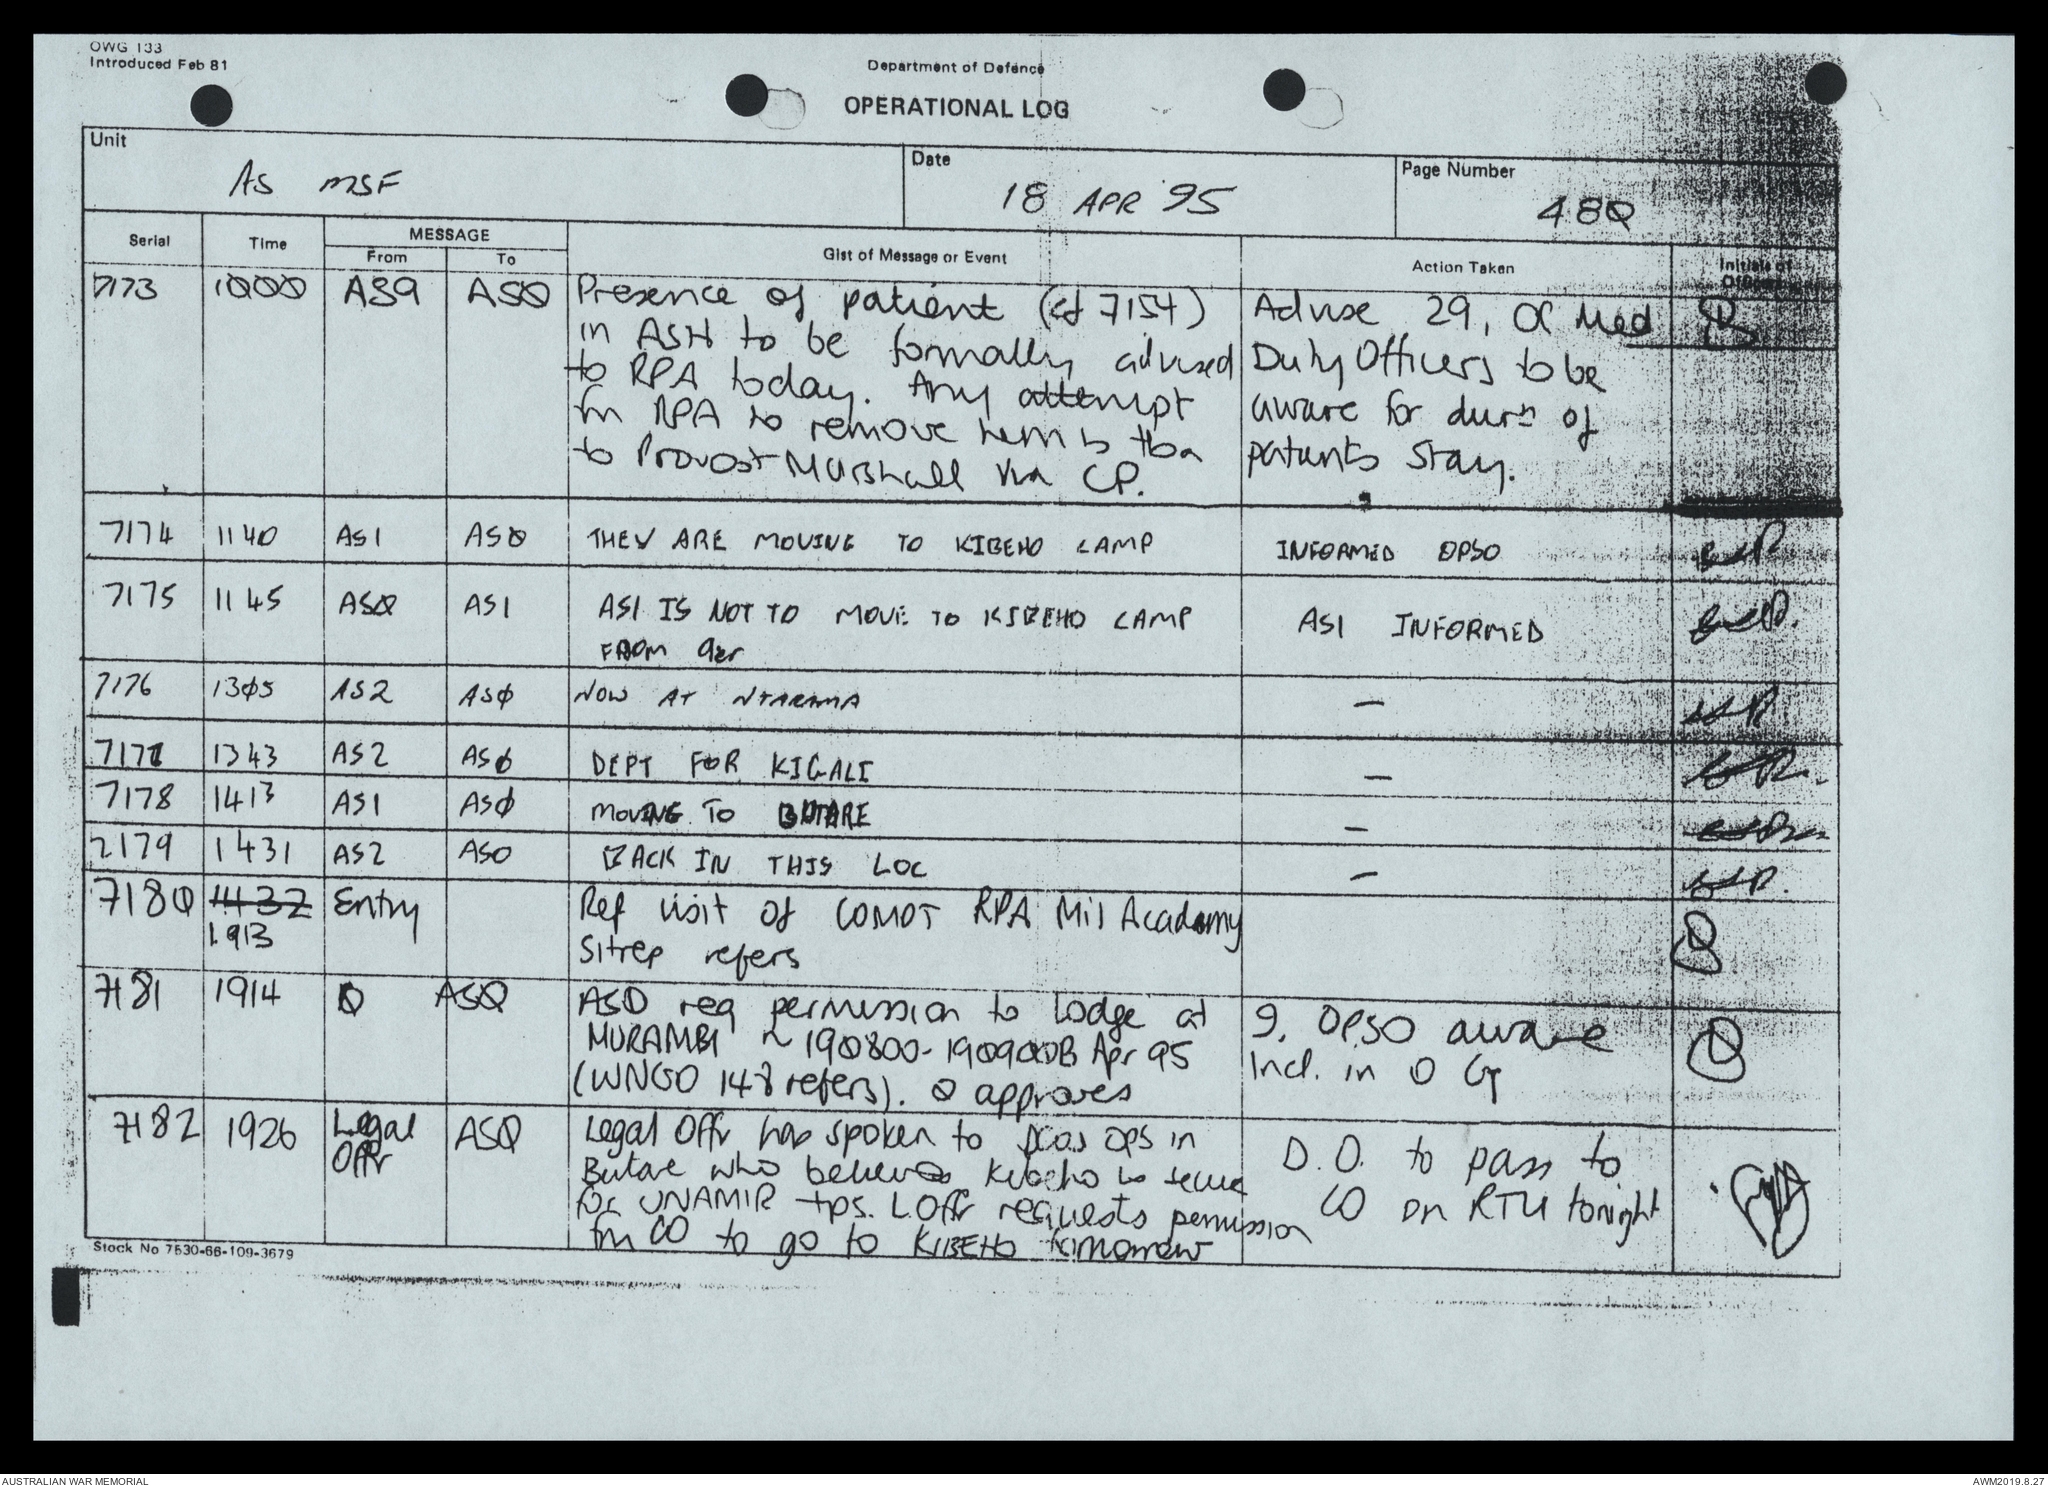 OWG 133
Introduced Feb 81
Department of Defence
OPERATIONAL LOG
Unit
AS MSF
Date
18 APR 95
Page Number
480
Serial
Time
MESSAGE
From
To
Gist of Message or Event
Action Taken
Initials of
Officer
7173 1000 AS9 AS0 Presence of patient (cf 7154) Advise 29, OC Med
in ASH to be formally advised Duty Officers to be
to RPA today. Any attempt aware for durn of
fm RPA to remove him is tba patients stay.
to Provost Marshall via CP.
7174 1140 AS1 AS0 THEY ARE MOVING TO KIBEHO CAMP INFORMED OPSO
7175 1145 AS0 AS1 AS1 IS NOT TO MOVE TO KIBEHO CAMP AS1 INFORMED
FROM 9er
7176 1305 AS2 AS0 NOW AT NTARAMA —
7177 1343 AS2 AS0 DEPT FOR KIGALI —
7178 1413 AS1 AS0 MOVING TO BUTARE —
7179 1431 AS2 AS0 BACK IN THIS LOC —
7180 1432 Entry Ref visit of COMDT RPA Mil Academy
1913 Sitrep refers
7181 1914 0 AS0 AS0 req permission to lodge at 9, OPSO aware
MURAMBI ~ 190800-190900B Apr 95 Incl. in O Gp
(WNGO 148 refers). 0 approves
7182 1926 Legal AS0 Legal Offr has spoken to DCOS OPS in D.O. to pass to
Offr Butare who believes Kibeho is secure CO on RTU tonight
for UNAMIR tps. L.Offr requests permission
fm CO to go to KIBEHO tomorrow
Stock No 7530-66-109-3679
AUSTRALIAN WAR MEMORIAL
AWM2019.8.27